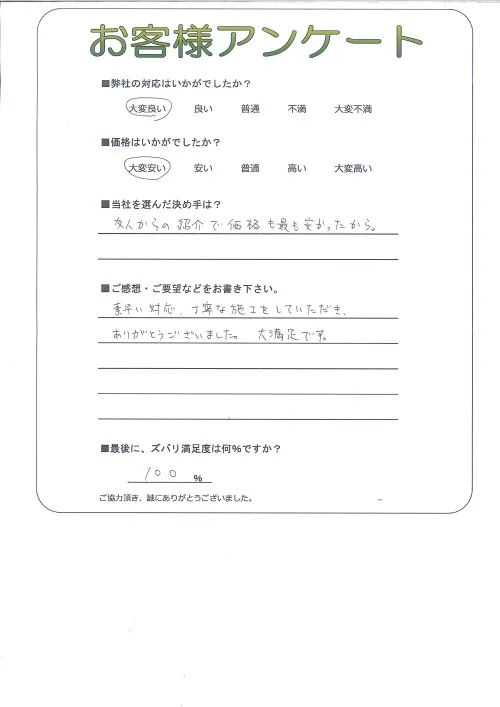 お客様アンケート
■弊社の対応はいかがでしたか？
大変良い 良い 普通 不満 大変不満
■価格はいかがでしたか？
大変安い 安い 普通 高い 大変高い
■当社を選んだ決め手は？
友人からの紹介で価格も最も安かったから。
■ご感想・ご要望などをお書き下さい。
素早い対応、丁寧な施工をしていただき、
ありがとうございました。 大満足です。
■最後に、ズバリ満足度は何%ですか？
100 %
ご協力頂き、誠にありがとうございました。